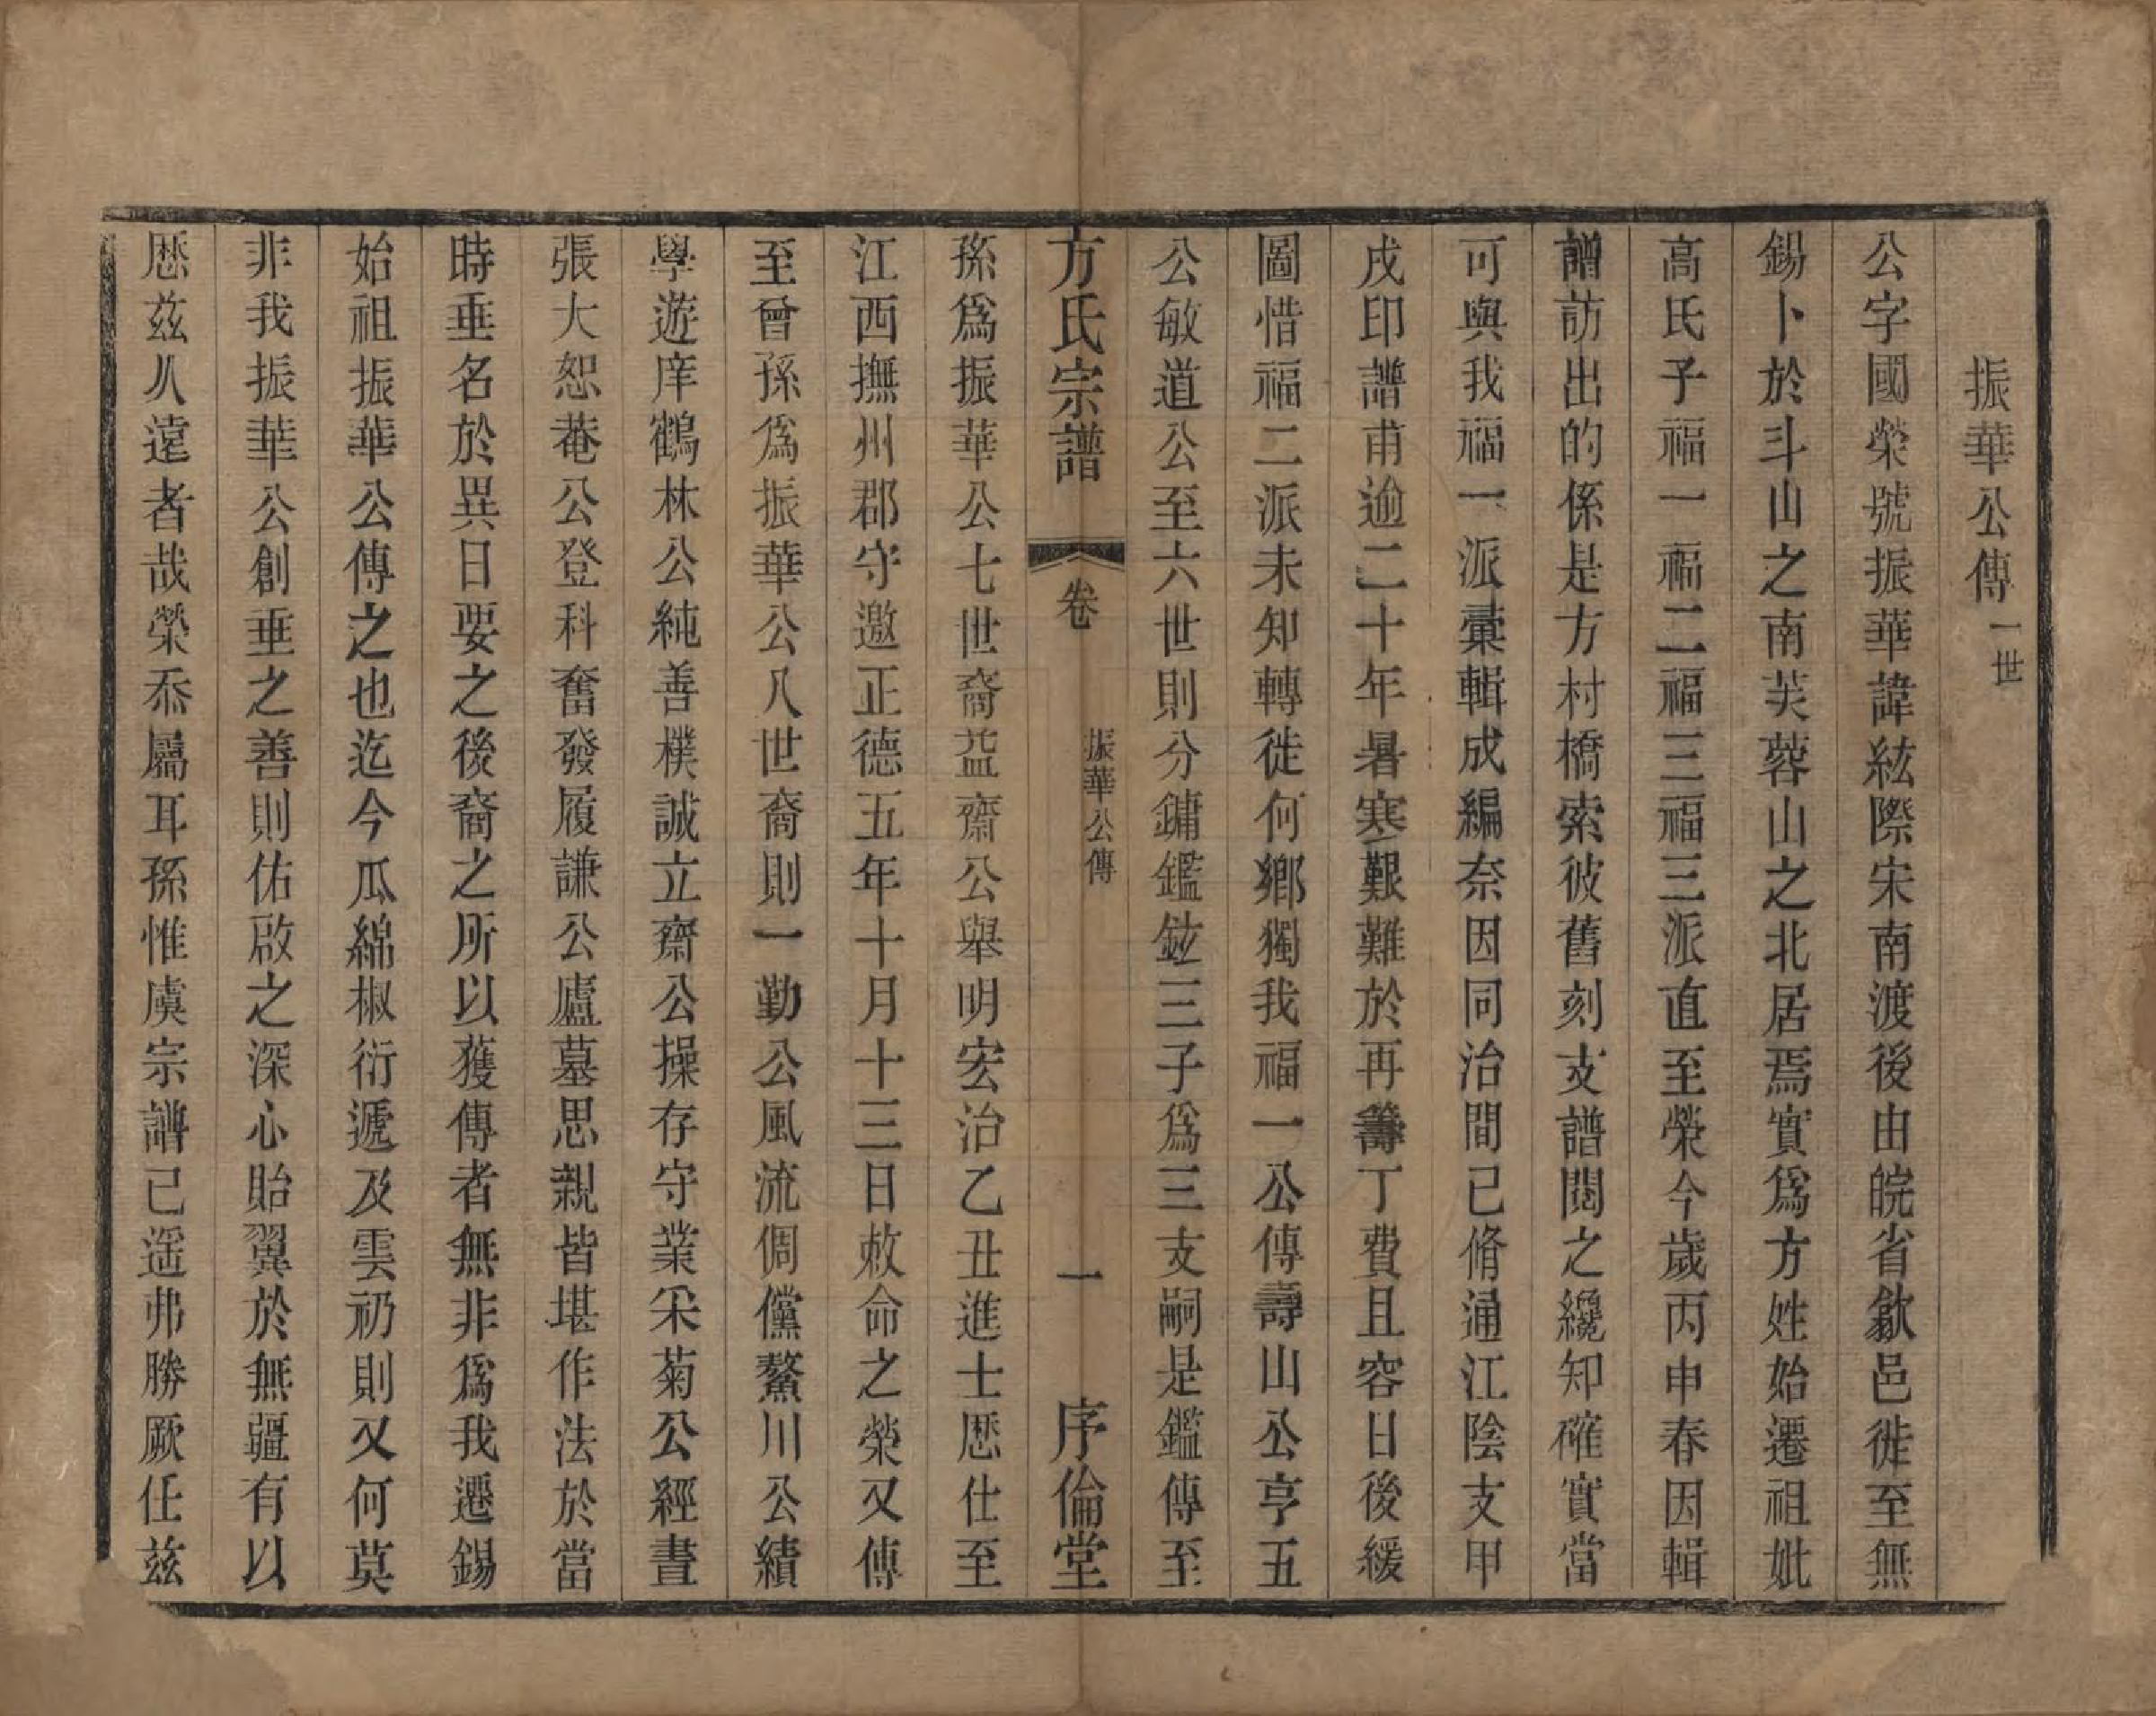 振華公傳一世
公字國榮號振華諱紘際宋南渡後由皖省歙邑徙至無
錫卜於斗山之南芙蓉山之北居焉實爲方姓始遷祖妣
高氏子福一福二福三福三派直至榮今歲丙申春因輯
譜訪出的係是方村橋索彼舊刻支譜閱之纔知確實當
可與我福一派彙輯成編奈因同治間已脩通江陰支甲
戌印譜甫逾二十年暑寒艱難於再籌丁費且容日後緩
圖惜福二派未知轉徙何鄉獨我福一公傳壽山公亨五
公敏道公至六世則分鏞鑑鉉三子爲三支嗣是鑑傳至
方氏宗譜 卷 振華公傳 一 序倫堂
孫爲振華公七世裔益齋公舉明宏治乙丑進士歷仕至
江西撫州郡守邀正德五年十月十三日敕命之榮又傳
至曾孫爲振華公八世裔則一勤公風流倜儻鰲川公績
學遊庠鶴林公純善樸誠立齋公操存守業釆菊公經晝
張大恕菴公登科奮發履謙公廬墓思親皆堪作法於當
時垂名於異日要之後裔之所以獲傳者無非爲我遷錫
始祖振華公傳之也迄今瓜綿椒衍遞及雲礽則又何莫
非我振華公創垂之善則佑啟之深心貽翼於無疆有以
歷茲乆遠者哉榮忝屬耳孫惟虞宗譜已遥弗勝厥任茲